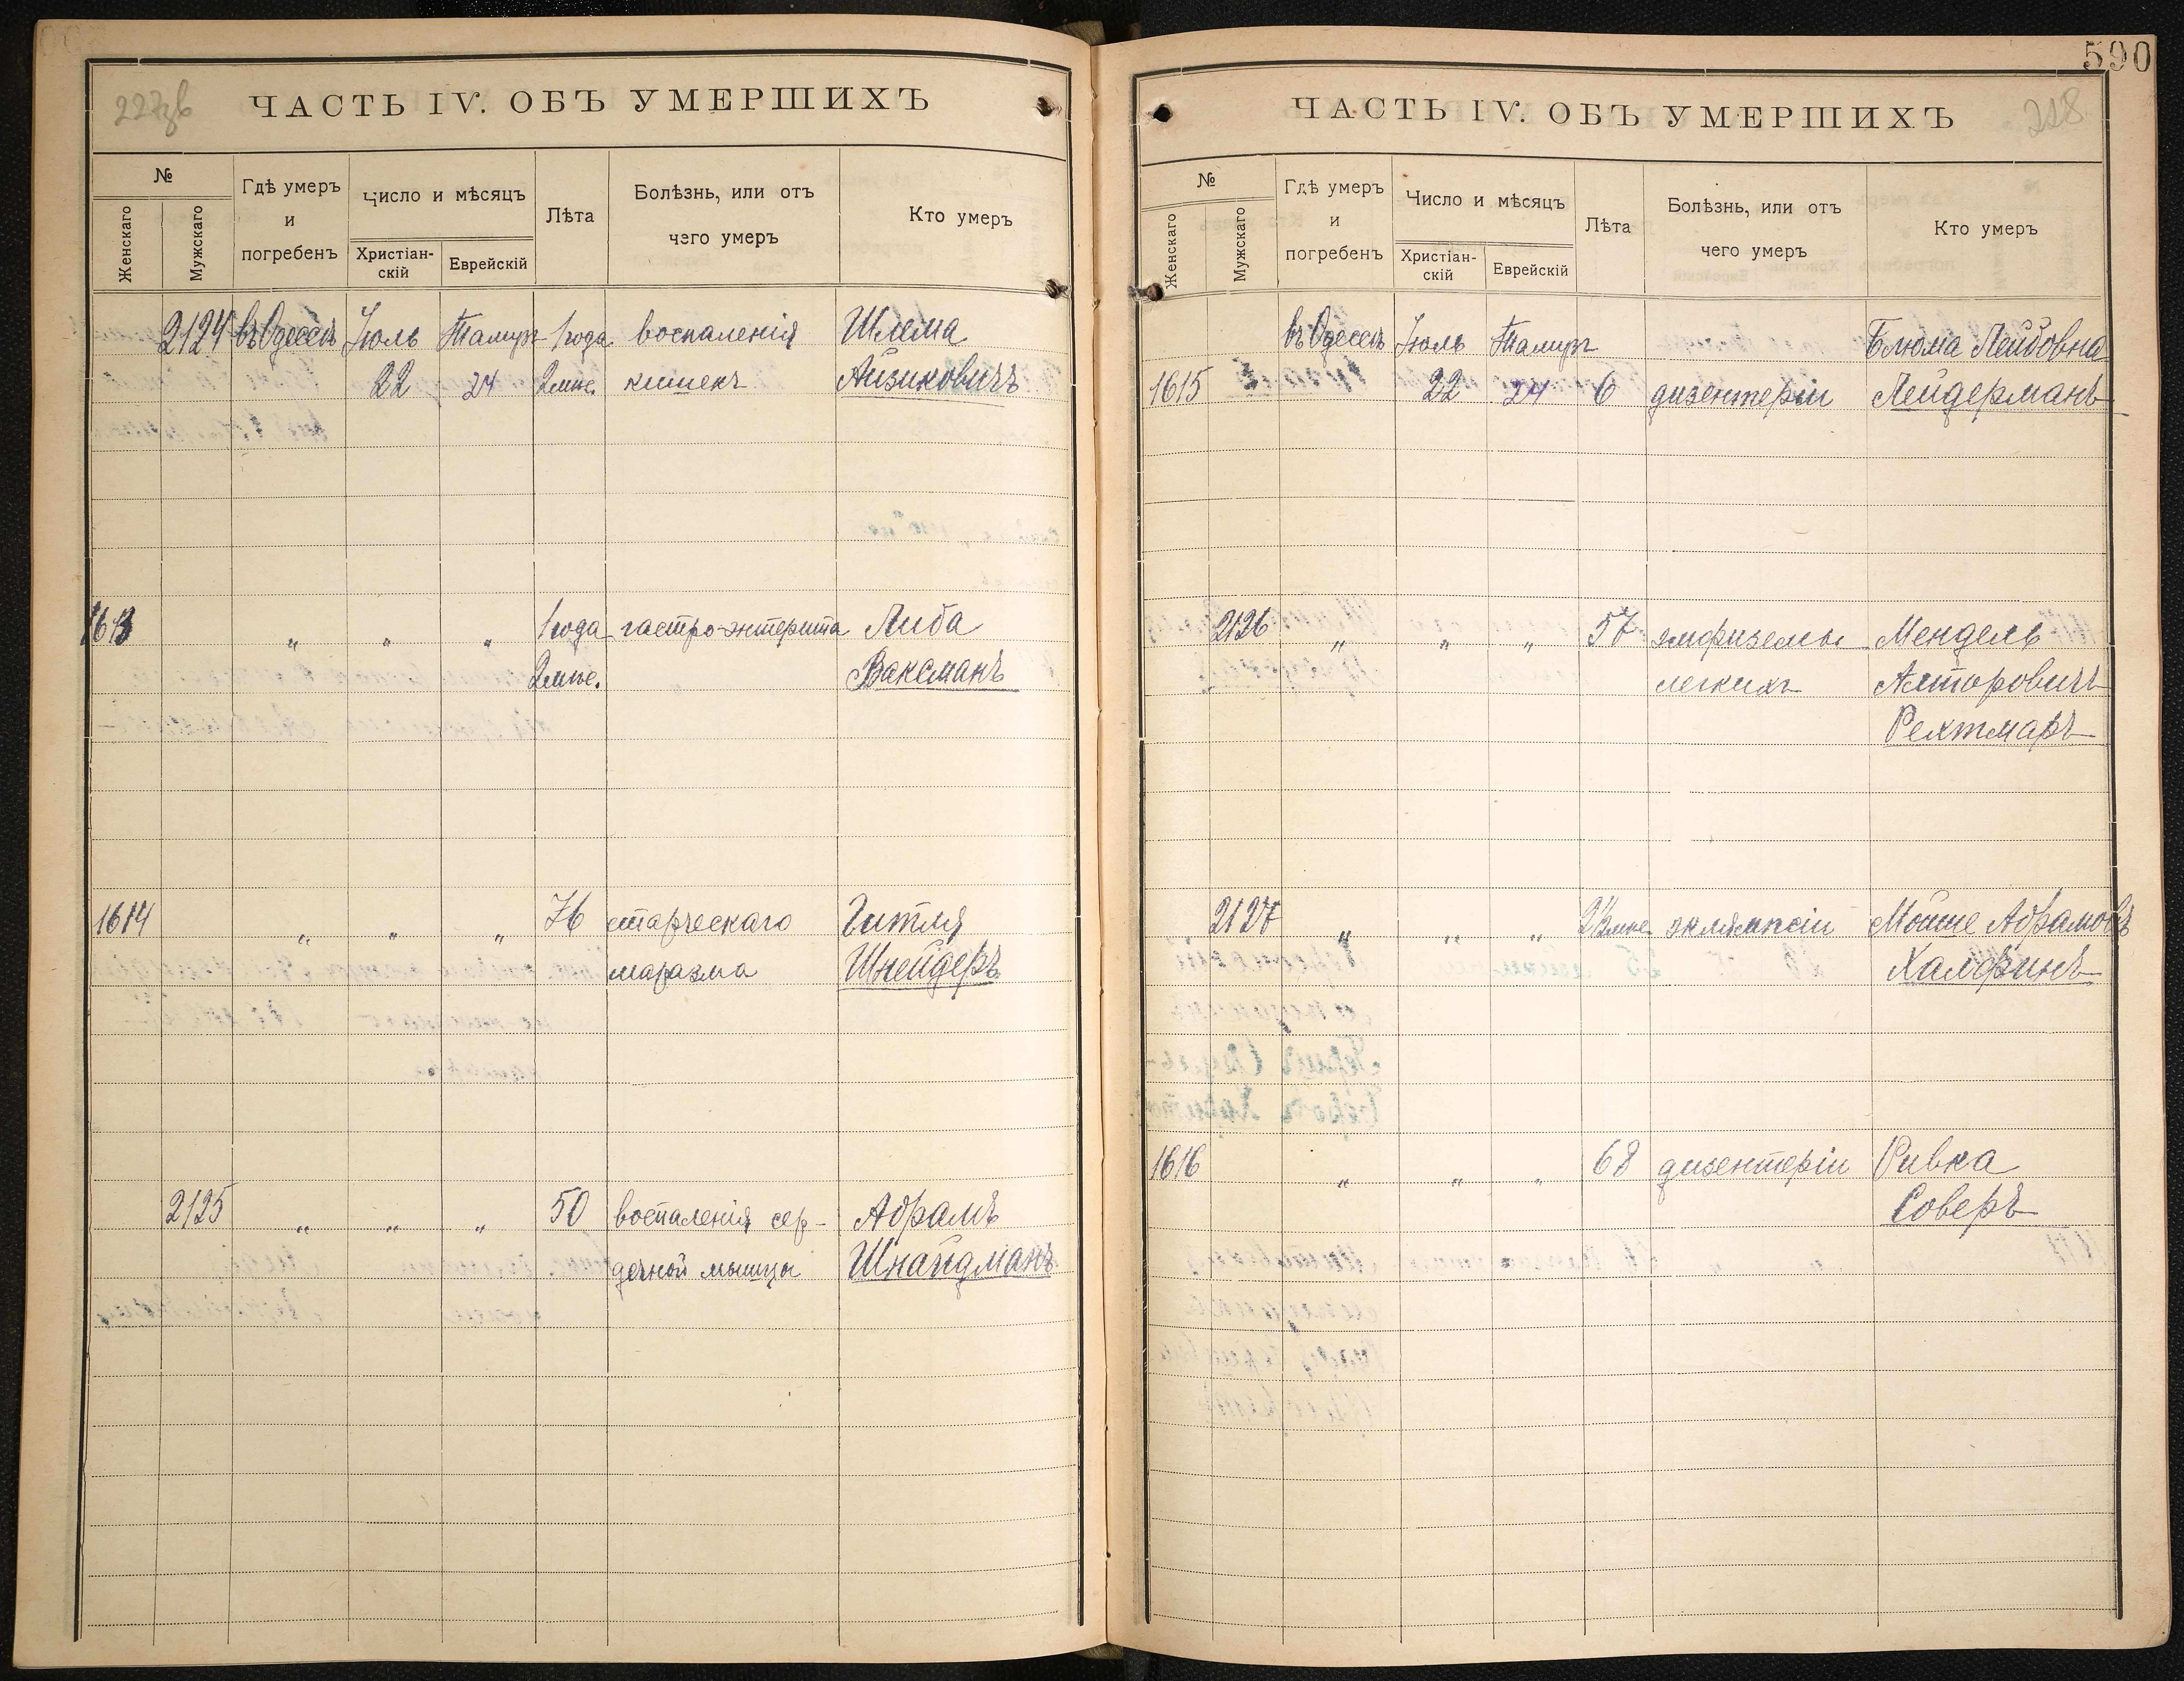 227об
ЧАСТЬ IV. ОБЪ УМЕРШИХЪ
№
Женскаго
Мужскаго
Гдѣ умеръ
и
погребенъ
Число и мѣсяцъ
Христіан-
скій
Еврейскій
Лѣта
Болѣзнь, или отъ
чего умеръ
Кто умеръ
2124 въ Одессѣ Іюль Тамуз 1 года воспаленія Шлема
22 24 2 мѣс. кишекъ Айзиковичъ
1613 " " " 1 года гастро-энтерита Либа
2 мѣс. Ваксманъ
1614 " " " 76 старческаго Гитля
маразма Шнейдеръ
2125 " " " 50 воспаленія сер-
дечной мышцы
Абрамъ
Шнайдманъ
590
ЧАСТЬ IV. ОБЪ УМЕРШИХЪ
228
№
Женскаго
Мужскаго
Гдѣ умеръ
и
погребенъ
Число и мѣсяцъ
Христіан-
скій
Еврейскій
Лѣта
Болѣзнь, или отъ
чего умеръ
Кто умеръ
въ Одессѣ Іюль Тамуз Блюма Лейбовна
1615 22 24 6 дизентеріи Лейдерманъ
2126 " " " 57 эмфиземы Мендель
легкихъ Алторовичъ
Рехтмаръ
2127 " " " 2½ мѣс. эклямпсіи Мойше Абрамовъ
Халфинъ
1616 " " " 68 дизентеріи Ривка
Соверъ